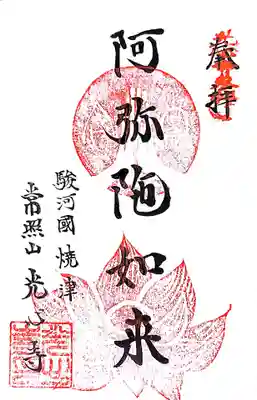 奉拝
阿弥陀如来
駿河國焼津
常照山光心寺